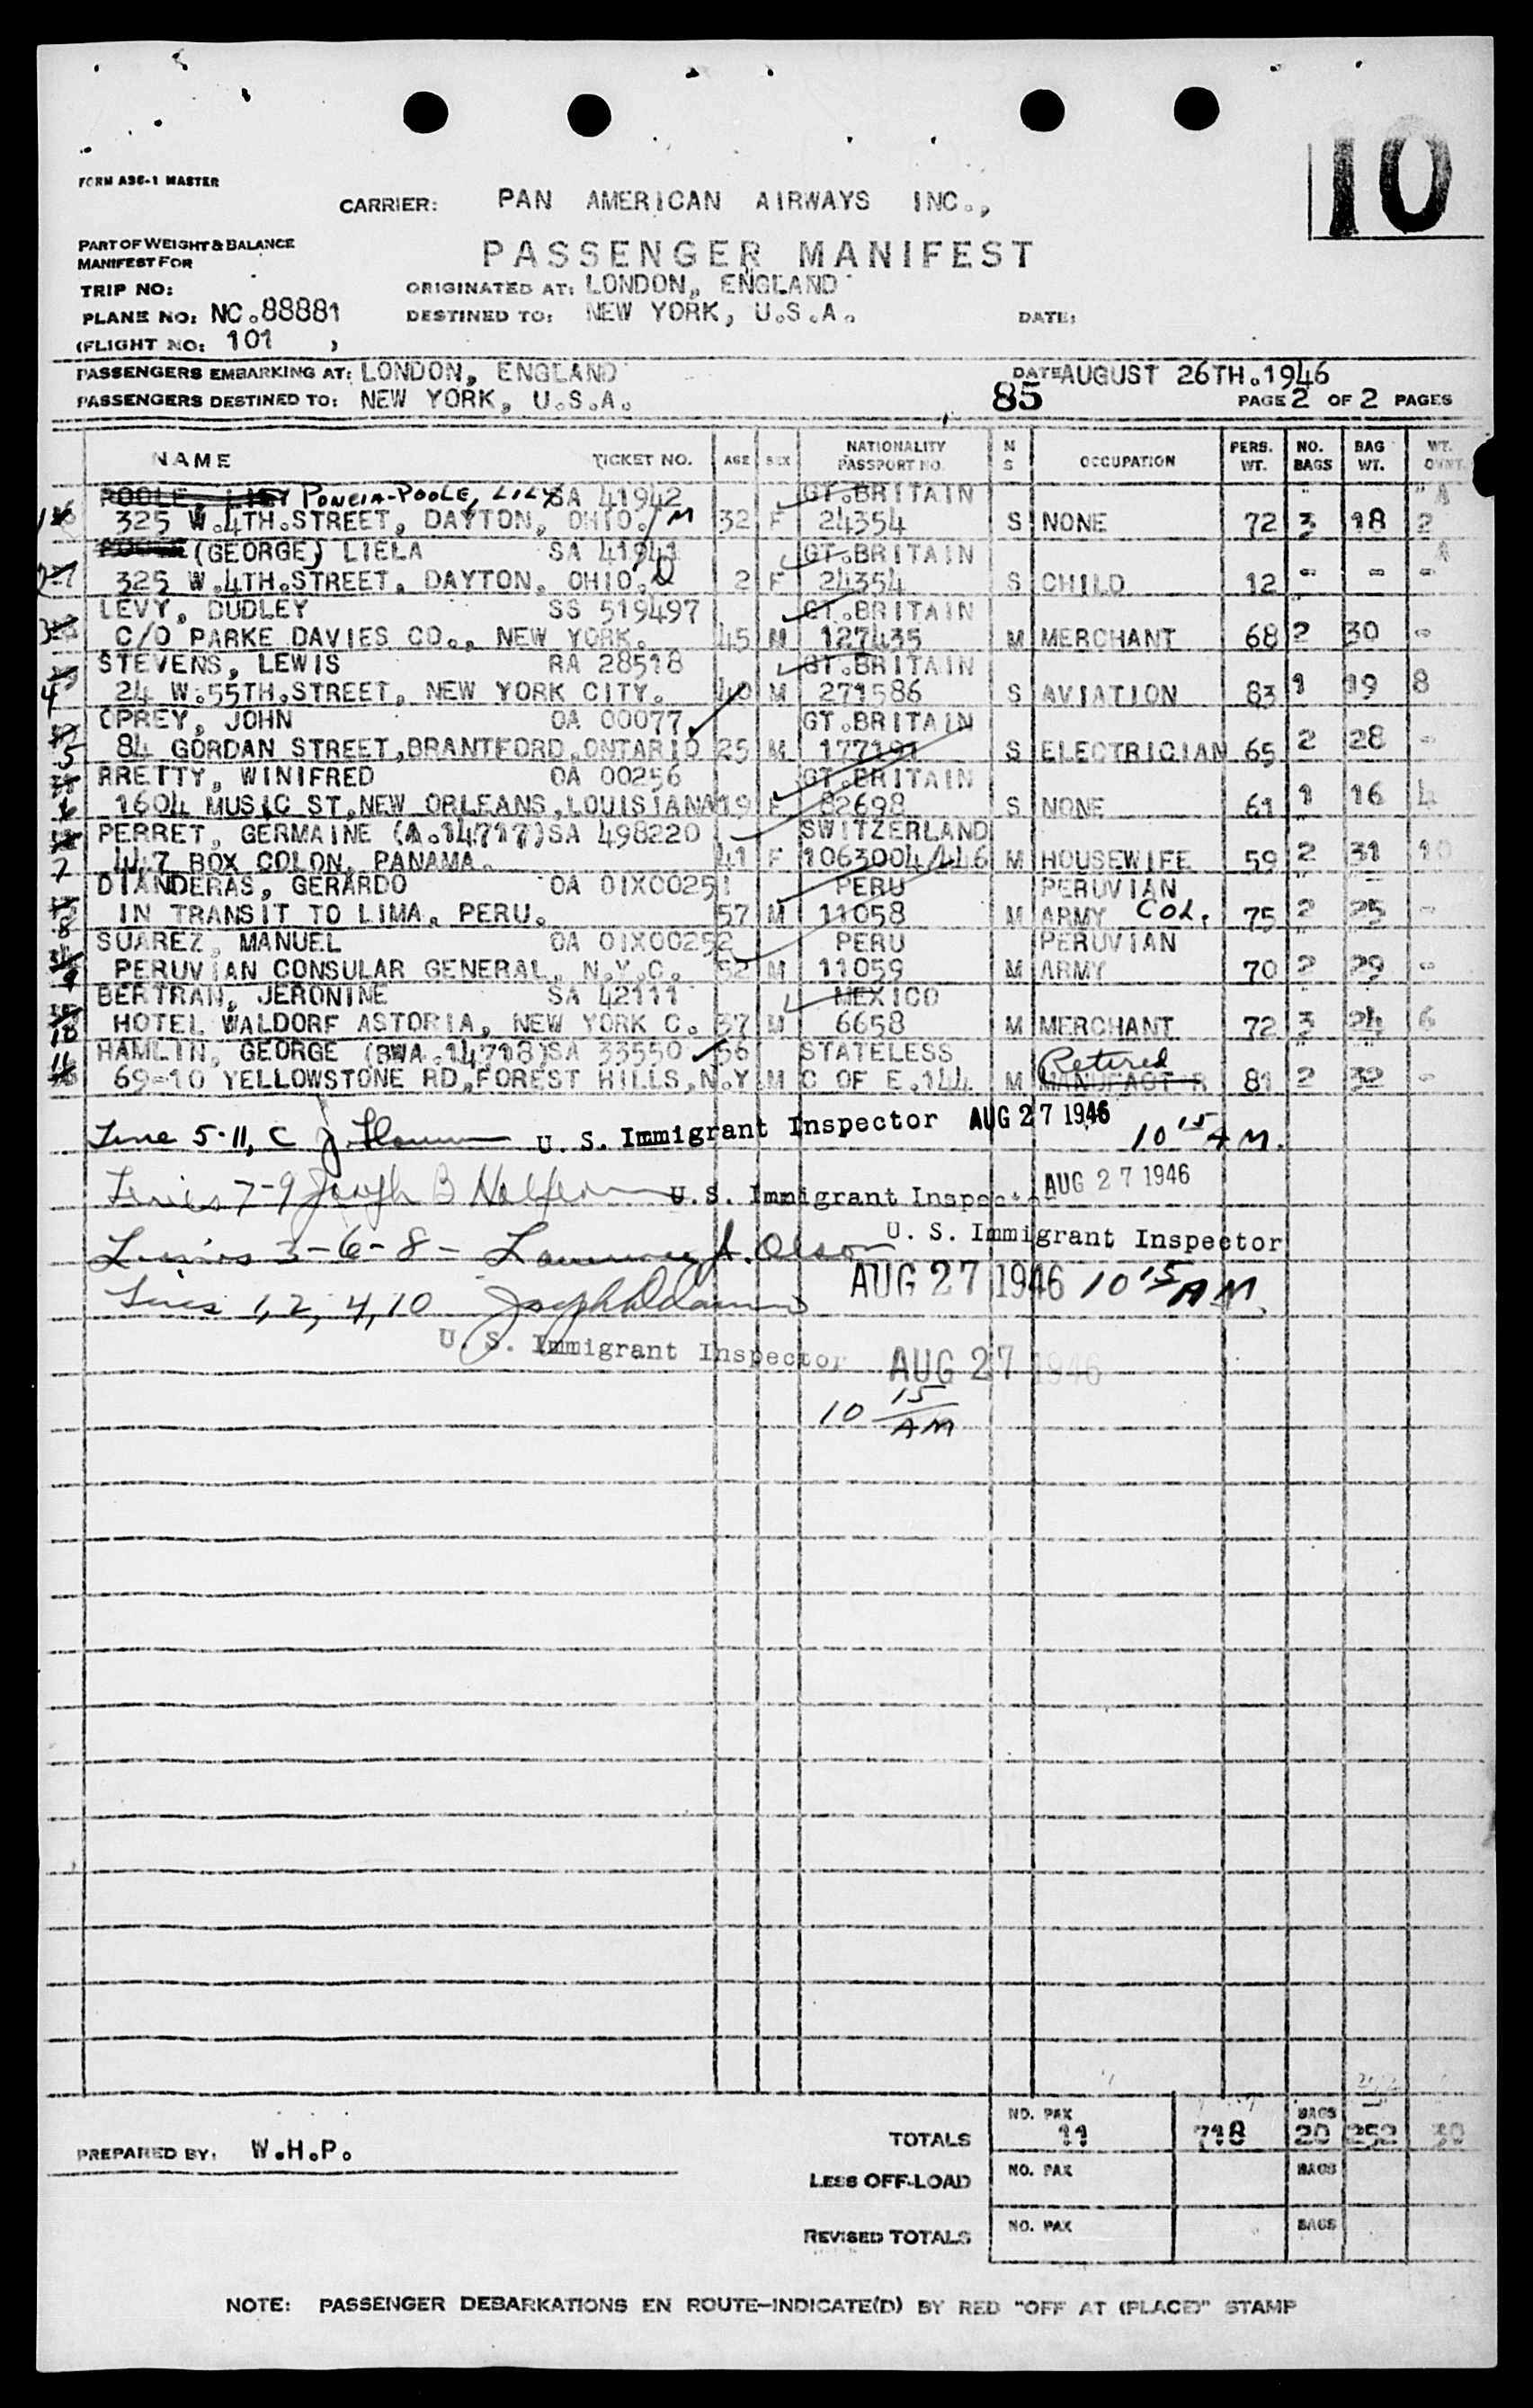 10
FORM ASC-1 MASTER
CARRIER: PAN AMERICAN AIRWAYS INC.,
PART OF WEIGHT & BALANCE
MANIFEST FOR
PASSENGER MANIFEST
TRIP NO: ORIGINATED AT: LONDON, ENGLAND
PLANE NO: NC.88881 DESTINED TO: NEW YORK, U.S.A. DATE:
(FLIGHT NO: 101 )
PASSENGERS EMBARKING AT: LONDON, ENGLAND DATE AUGUST 26TH.1946
PASSENGERS DESTINED TO: NEW YORK, U.S.A. 85 PAGE 2 OF 2 PAGES
NAME TICKET NO. AGE SEX NATIONALITY PASSPORT NO. M S OCCUPATION PERS. WT. NO. BAGS BAG WT. WT.
POOLE LILY PONCIA-POOLE, LILY SA 41942 GT.BRITAIN
1 325 W.4TH.STREET, DAYTON, OHIO. M 32 F 24354 S NONE 72 3 18 2
POOLE (GEORGE) LIELA SA 41941 GT.BRITAIN
2 325 W.4TH.STREET, DAYTON, OHIO. 2 F 24354 S CHILD 12 - - -
LEVY, DUDLEY SS 519497 GT.BRITAIN
3 C/O PARKE DAVIES CO., NEW YORK. 45 M 127435 M MERCHANT 68 2 30 -
STEVENS, LEWIS RA 28518 GT.BRITAIN
4 24 W.55TH.STREET, NEW YORK CITY. 40 M 271586 S AVIATION 83 1 19 8
OPREY, JOHN OA 00077 GT.BRITAIN
5 84 GORDAN STREET,BRANTFORD,ONTARIO 25 M 177191 S ELECTRICIAN 65 2 28 -
RRETTY, WINIFRED OA 00256 GT.BRITAIN
6 1604 MUSIC ST,NEW ORLEANS,LOUISIANA 19 F 82698 S NONE 61 1 16 4
PERRET, GERMAINE (A.14717) SA 498220 SWITZERLAND
7 447 BOX COLON, PANAMA. 41 F 1063004/446 M HOUSEWIFE 59 2 31 10
DIANDERAS, GERARDO OA 01X00251 PERU PERUVIAN
8 IN TRANSIT TO LIMA, PERU. 57 M 11058 M ARMY COL. 75 2 25 -
SUAREZ, MANUEL OA 01X00252 PERU PERUVIAN
9 PERUVIAN CONSULAR GENERAL, N.Y.C. 52 M 11059 M ARMY 70 2 29 -
BERTRAN, JERONINE SA 42111 MEXICO
10 HOTEL WALDORF ASTORIA, NEW YORK C. 37 M 6658 M MERCHANT 72 3 24 6
11 HAMLIN, GEORGE (BWA.14718) SA 33550 56 STATELESS Retired
69-10 YELLOWSTONE RD,FOREST HILLS,N.Y. M C OF E.144 M MANUFACT'R 81 2 32 -
Line 5-11, C J U. S. Immigrant Inspector AUG 27 1946 10 15 AM.
Lines 7-9 Joseph B U.S. Immigrant Inspector AUG 27 1946
U. S. Immigrant Inspector
Lines 3-6-8- Lawrence A. Olson AUG 27 1946 10 15 AM.
Lines 1, 2, 4, 10 Joseph
U. S. Immigrant Inspector AUG 27 1946
10 15 AM
NO. PAX BAGS
PREPARED BY: W.H.P. TOTALS 11 718 20 252 30
LESS OFF-LOAD NO. PAX BAGS
REVISED TOTALS NO. PAX BAGS
NOTE: PASSENGER DEBARKATIONS EN ROUTE-INDICATE(D) BY RED "OFF AT (PLACE)" STAMP